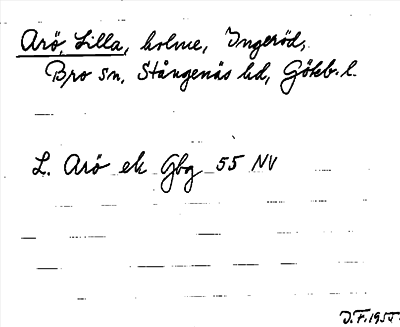 Arö, Lilla, holme, Ingeröd,
Bro sn, Stångenäs hd, Göteb. l.
L. Arö ek Gbg 55 NV
D.F. 1955